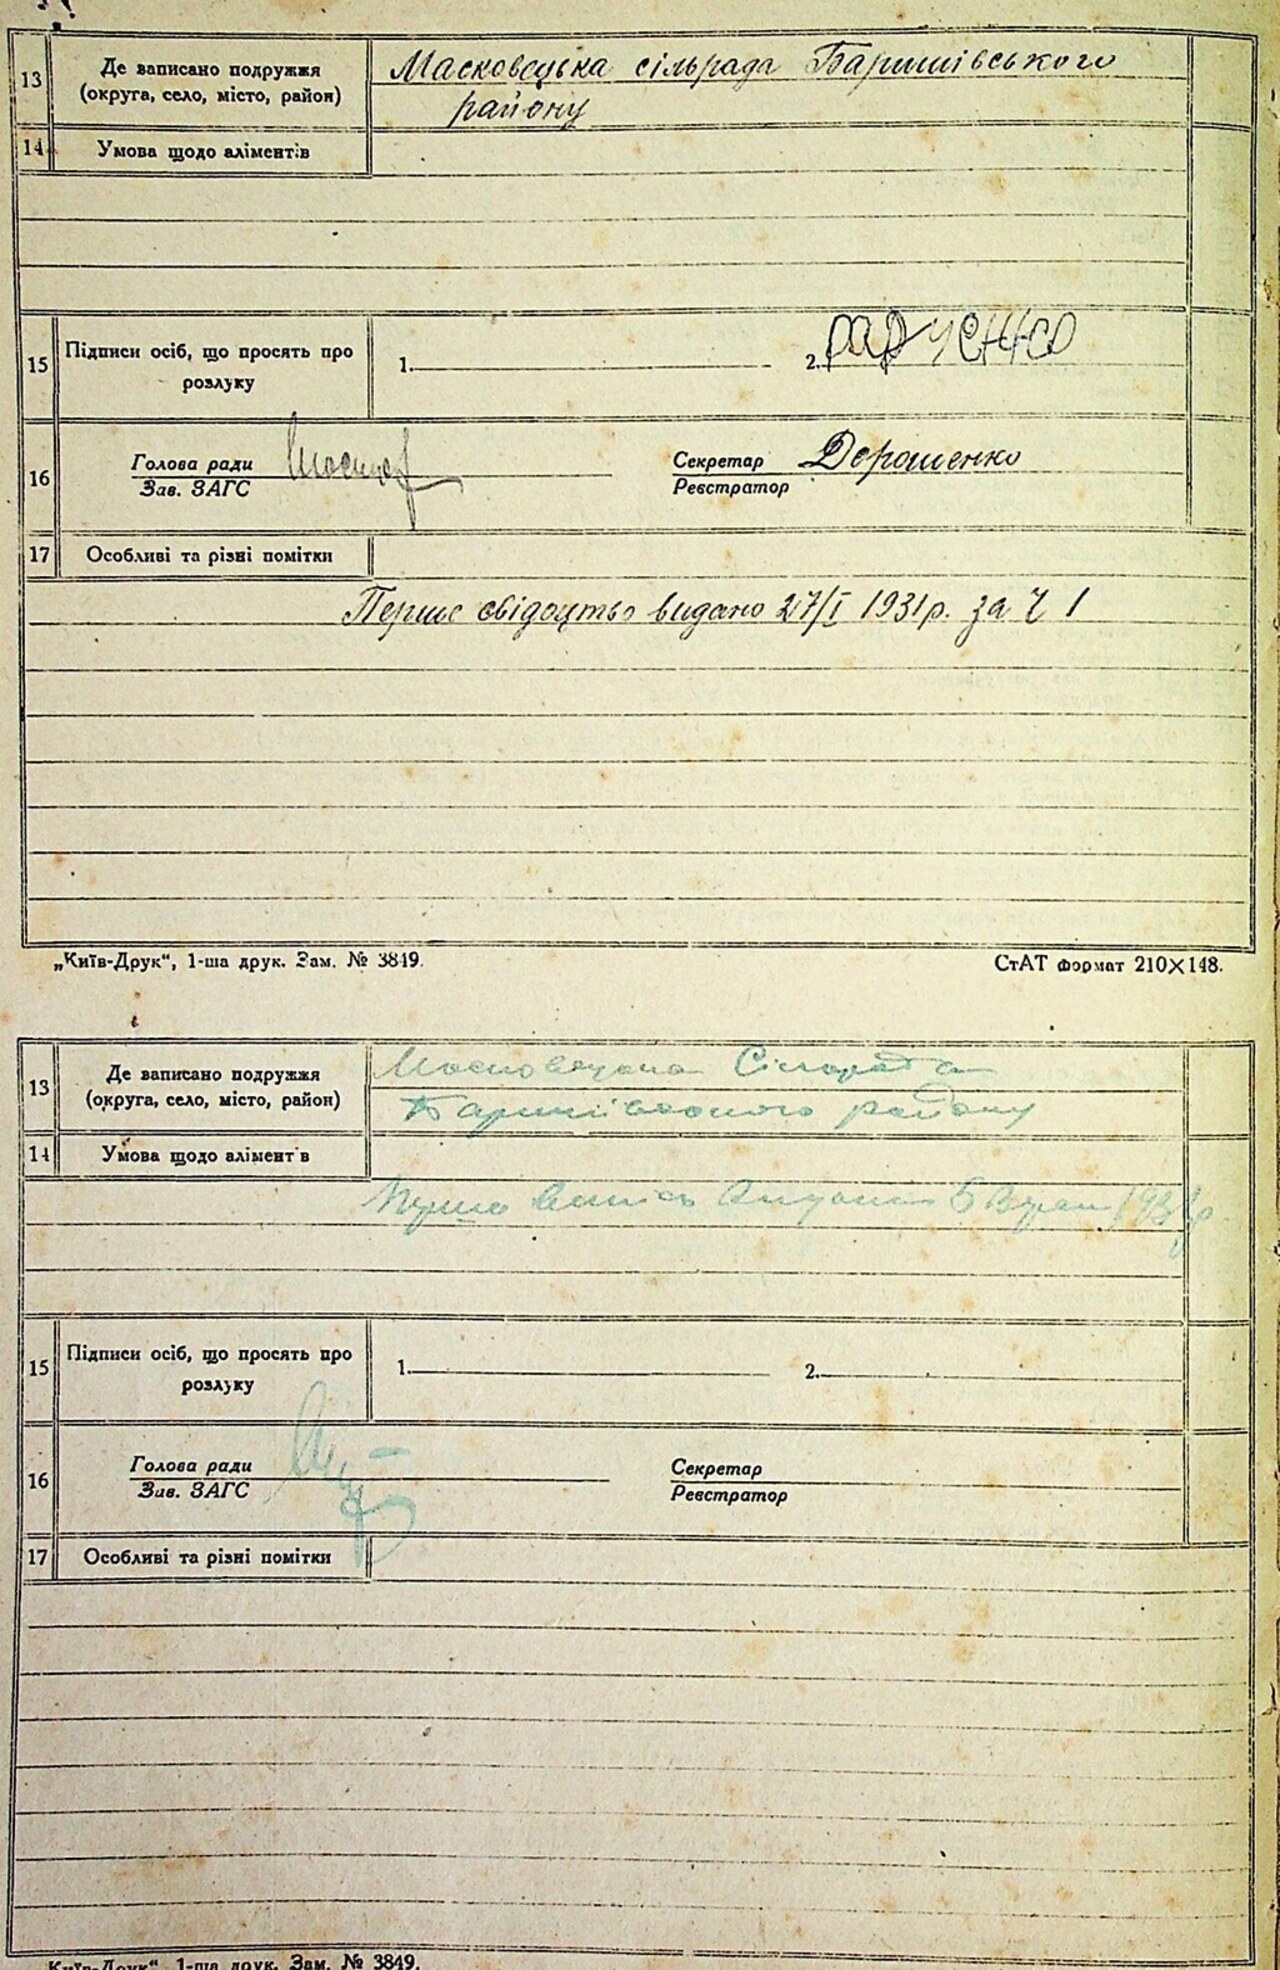 13
Де записано подружжя
(округа, село, місто, район)
Масковецька сільрада Баришівського
району
14
Умова щодо аліментів
15
Підписи осіб, що просять про
розлуку
1.
2.
16
Голова ради
Зав. ЗАГС
Секретар Дорошенко
Реєстратор
17
Особливі та різні помітки
Перше свідоцтво видано 27/I 1931р. за Ч 1
„Київ-Друк“, 1-ша друк. Зам. № 3849.
СтАТ формат 210×148.
13
Де записано подружжя
(округа, село, місто, район)
Масковецька Сільрада
Баришівського району
14
Умова щодо аліментів
15
Підписи осіб, що просять про
розлуку
1.
2.
16
Голова ради
Зав. ЗАГС
Секретар
Реєстратор
17
Особливі та різні помітки
„Київ-Друк“, 1-ша друк. Зам. № 3849.